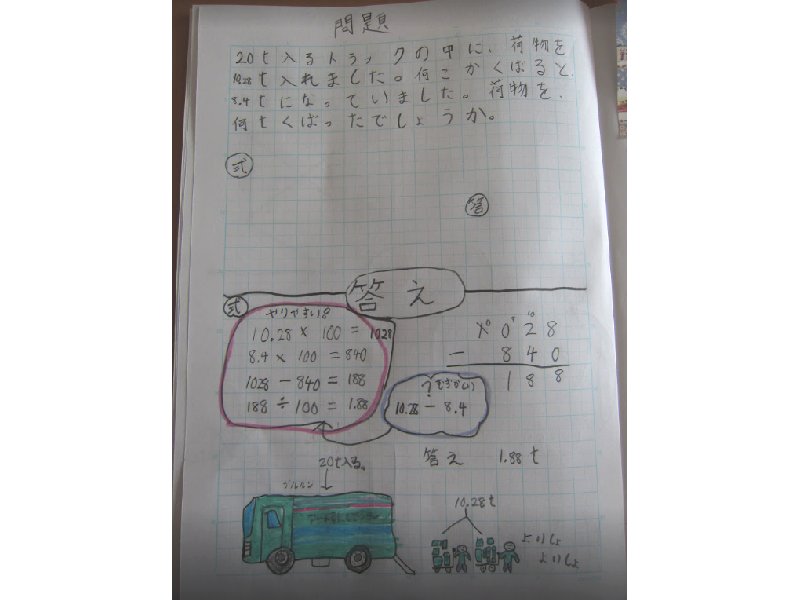 問題
20t入るトラックの中に、荷物を
10.28t入れました。何こかくばると、
8.4tになっていました。荷物を、
何tくばったでしょうか。
式
答
答え
式
やりやすい!
10.28 × 100 = 1028
8.4 × 100 = 840
1028 - 840 = 188
188 ÷ 100 = 1.88
10.28 - 8.4
1028
- 840
188
答え 1.88t
20t入る。
ブルルン
10.28t
よいしょ
よいしょ